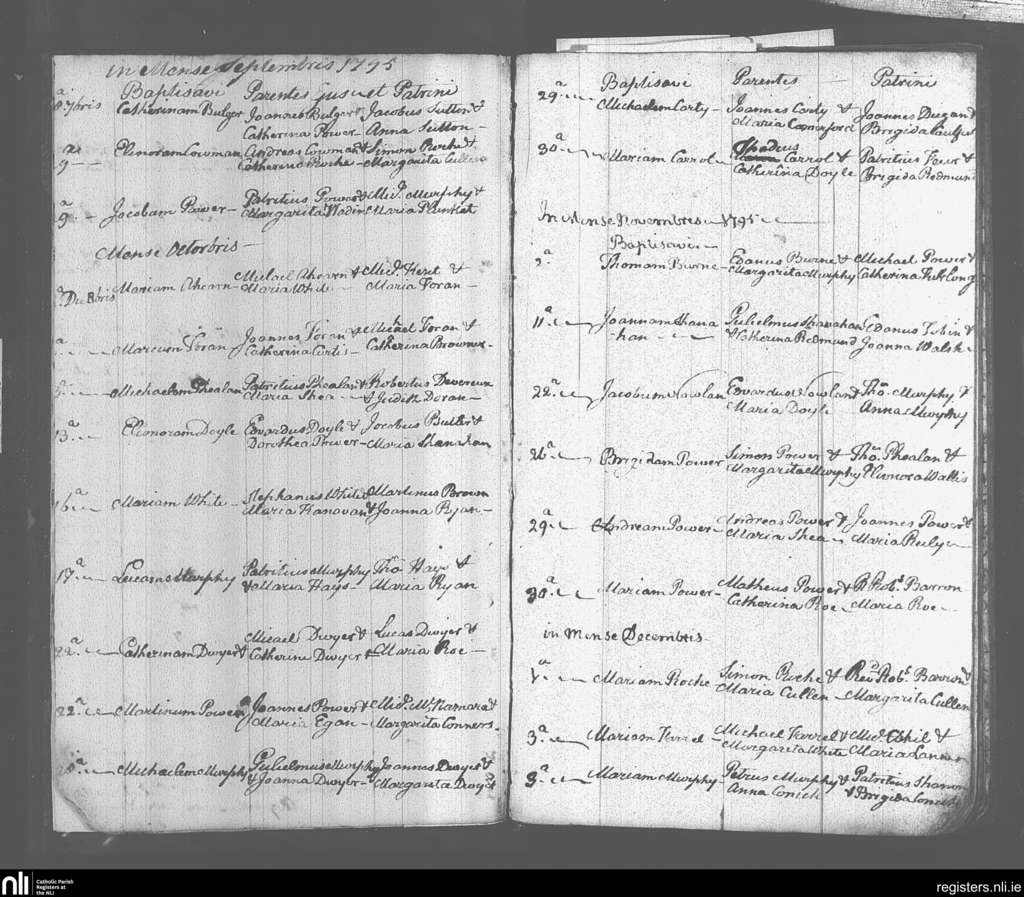 in Mense Septembris 1795
Baptisavi Parentes Patrini
Catherinam Bulger Joannes Bulger & Jacobus Sutton &
Catherina Power Anna Sutton
Elenoram Cowman Andreas Cowman & Simon Roche &
Catherina Roche Margarita Cullen
9a Jacobam Power Patritius Power & Michl. Murphy &
Margarita Maria Plunket
Mense Octorbris
Mariam Ahearn Michael Ahearn & Michl. Kent &
Maria White Maria Foran
Marcum Foran Joannes Foran & Michael Foran &
Catherina Cortis Catherina Browne
Michaelem Phealan Patritius Phealan & Robertus Devereux
Maria Shea & Judith Doran
13a Elenoram Doyle Edvardus Doyle & Jacobus Butler &
Dorothea Power Maria Shanahan
16a Mariam White Stephanus White & Martinus Brown
Maria Hanovan & Joanna Ryan
17a Lucam Murphy Patritius Murphy Tho Hays &
& Maria Hays Maria Ryan
22a Catherinam Dwyer Micael Dwyer & Lucas Dwyer &
Catherine Dwyer Maria Roe
22a Martinum Power Joannes Power & Michl. McNamara &
Maria Egan Margarita Conners
Michaelem Murphy Gulielmus Murphy Joannes Dwyer &
& Joanna Dwyer Margarita Dwyer
Baptisavi Parentes Patrini
29a Michaelem Corty Joannes Corty & Joannes Dugan &
Maria Comerford Brigida
30a Mariam Carrol Carrol & Patritius &
Catherina Doyle Brigida Redmund
In Mense Novembres 1795
Baptisavi
2a Thomam Burne Edanus Burne & Michael Power &
Margarita Murphy Catherina Furlong
11a Joannam Shana Gulielmus Shanahan Edanus Tobin &
han & Catherina Redmund Joanna Walsh
22a Jacobum Nowlan Edvardus Nowlan & Tho Murphy &
Maria Doyle Anna Murphy
26a Brigidam Power Simon Power & Tho. Phealan &
Margarita Murphy Elenora Wallis
29a Andream Power Andreas Power & Joannes Power &
Maria Shea Maria Reily
30a Mariam Power Matheus Power & R Robt. Barron
Catherina Roe Maria Roe
in Mense Decembris
1a Mariam Roche Simon Roche & Revd Robt. Barron &
Maria Cullen Margarita Cullen
3a Mariam Farrel Michael Farrel & Michl. &
Margarita White Maria
3a Mariam Murphy Petrus Murphy & Patritius
Anna Conick & Brigida Conick
nli
Catholic Parish
Registers at
the NLI
registers.nli.ie